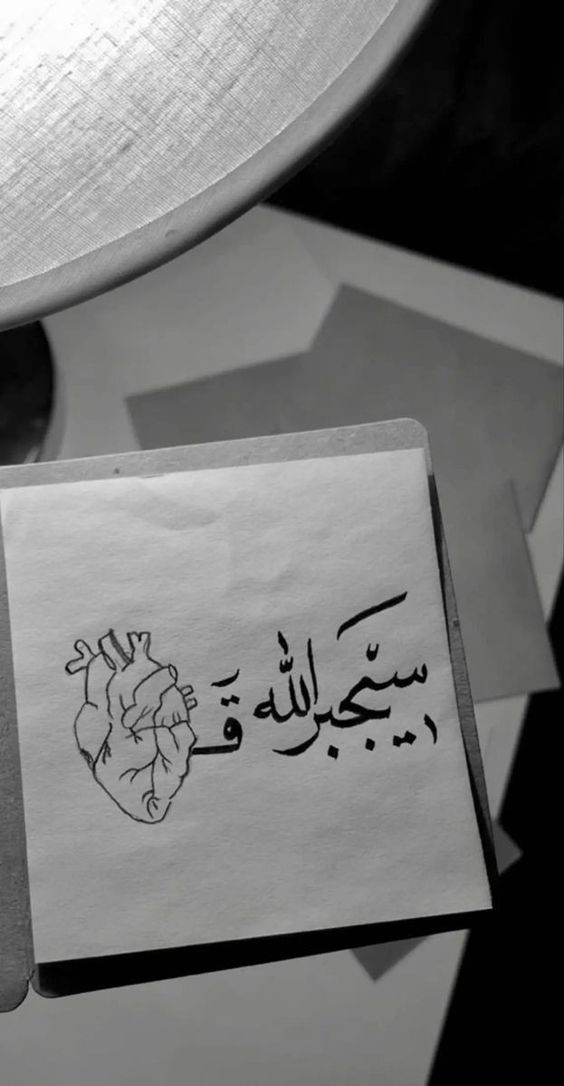 سيجبر الله قَـ